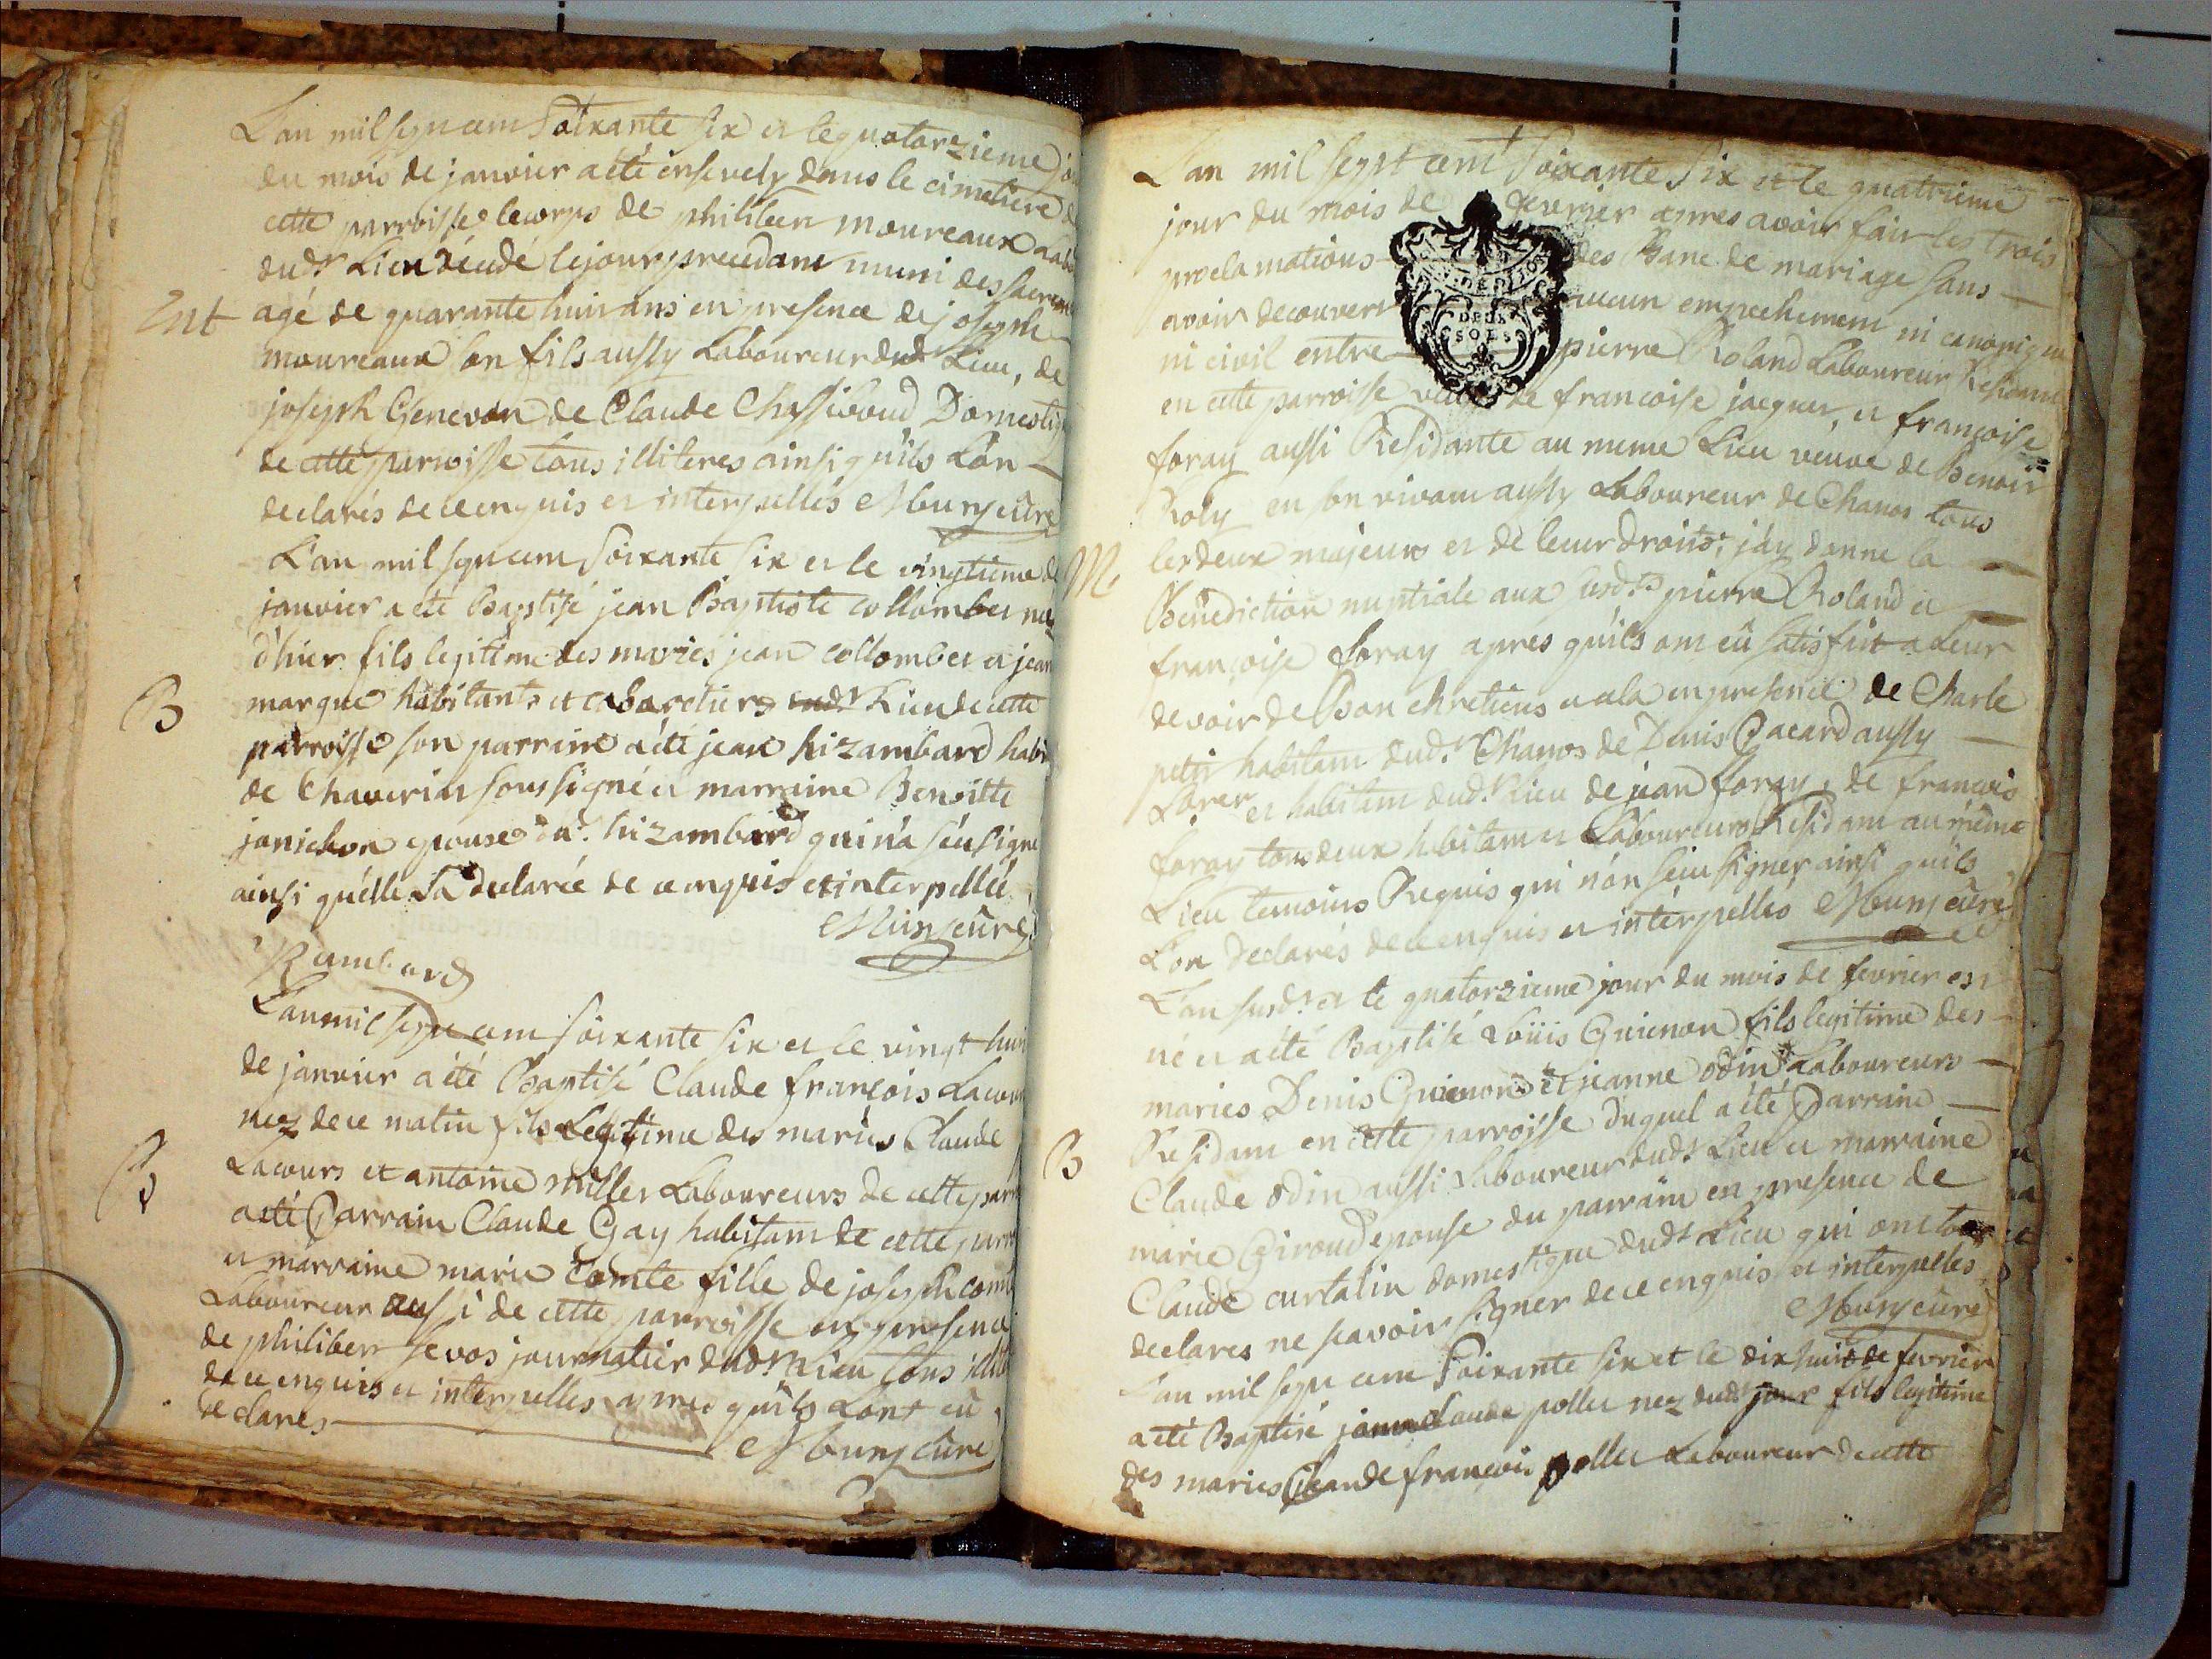 L'an mil sept cent soixante six et le quatorzieme
du mois de janvier a été ensevely dans le cimetiere
cette parroisse le corps de philibert moureaux
dud.t Lieu décedé le jour precedant muni des
Ent
agé de quarante huit ans en presence de joseph
moureaux son fils aussy Laboureur dud.t Lieu, de
joseph Genevon de Claude Domesti
de cette parroisse tous illiteres ainsi qu'ils L'on
declarés de ce enquis et interpellés curé
L'an mil sept cent soixante six et le vingtieme de
janvier a été Baptisé jean Baptiste Collombet
d'hier fils legitime des mariés jean Collombet et jean
B
marque habitants et cabaretiers Lieu de cette
parroisse son parrain a été jean hizambard habi
de soussigné et marraine Benoitte
janichon epouse du.t hizambard qui n'a sçu signé
ainsi qu'elle La declarée de ce enquis et interpellée
curé
L'an mil sept cent soixante six et le vingt huit
de janvier a été Baptisé Claude françois Lacour
nez de ce matin fils Legitime des mariés Claude
B
Lacours et antoine Laboureurs de cette par
a été Parrain Claude Gay habitant de cette parr
et marraine marie Comte fille de joseph com
Laboureur aussi de cette parroisse en presence
de philibert journalier dud.t Lieu tous
de ce enquis et interpelles apres qu'ils L'ont eû
declarés
curé
L'an mil sept cent soixante six et le quatrieme
jour du mois de fevrier apres avoir fait les trois
proclamations des Banc de mariage sans
DEUX
SOLS
avoir decouvert aucun empechement ni canonique
ni civil entre pierre Roland Laboureur Residant
en cette parroisse de francoise jacquet, et françoise
foray aussi Residante au meme Lieu veuve de Benoit
Roly en son vivant aussy Laboureur de Chanos tous
M
les deux majeurs et de leur droits; j'ay donne la
Benediction nuptiale aux susd.ts pierre Roland et
françoise foray aprés qu'ils ont eû satisfait a Leur
devoir de Bon chretiens et cela en presence de Charle
petit habitant dud.t Chanos de Denis Pacard aussy
et habitant dud.t Lieu de jean foray, de francois
foray tous deux habitant et Laboureurs Residant au même
Lieu temoins Requis qui n'on sçu signer ainsi qu'ils
L'on Declarés de ce enquis et interpellés curé
L'an susd.t et le quatorzieme jour du mois de fevrier est
né et a été Baptisé Loüis Guienon fils legitime des
mariés Denis Guienon et jeanne odin Laboureurs
B
Residant en cette parroisse duquel a été Parrain
Claude odin aussi Laboureur dud.t Lieu et marraine
marie Giroud epouse du parrain en presence de
Claude curtalin domestique dud.t Lieu qui ont
declares ne sçavoir signer de ce enquis et interpelles
curé
L'an mil sept cent soixante six et le dix huit de fevrier
a été Baptisé Claude pollet nez dud.t jour fils legitime
des mariés Claude françois pollet Laboureur de cette